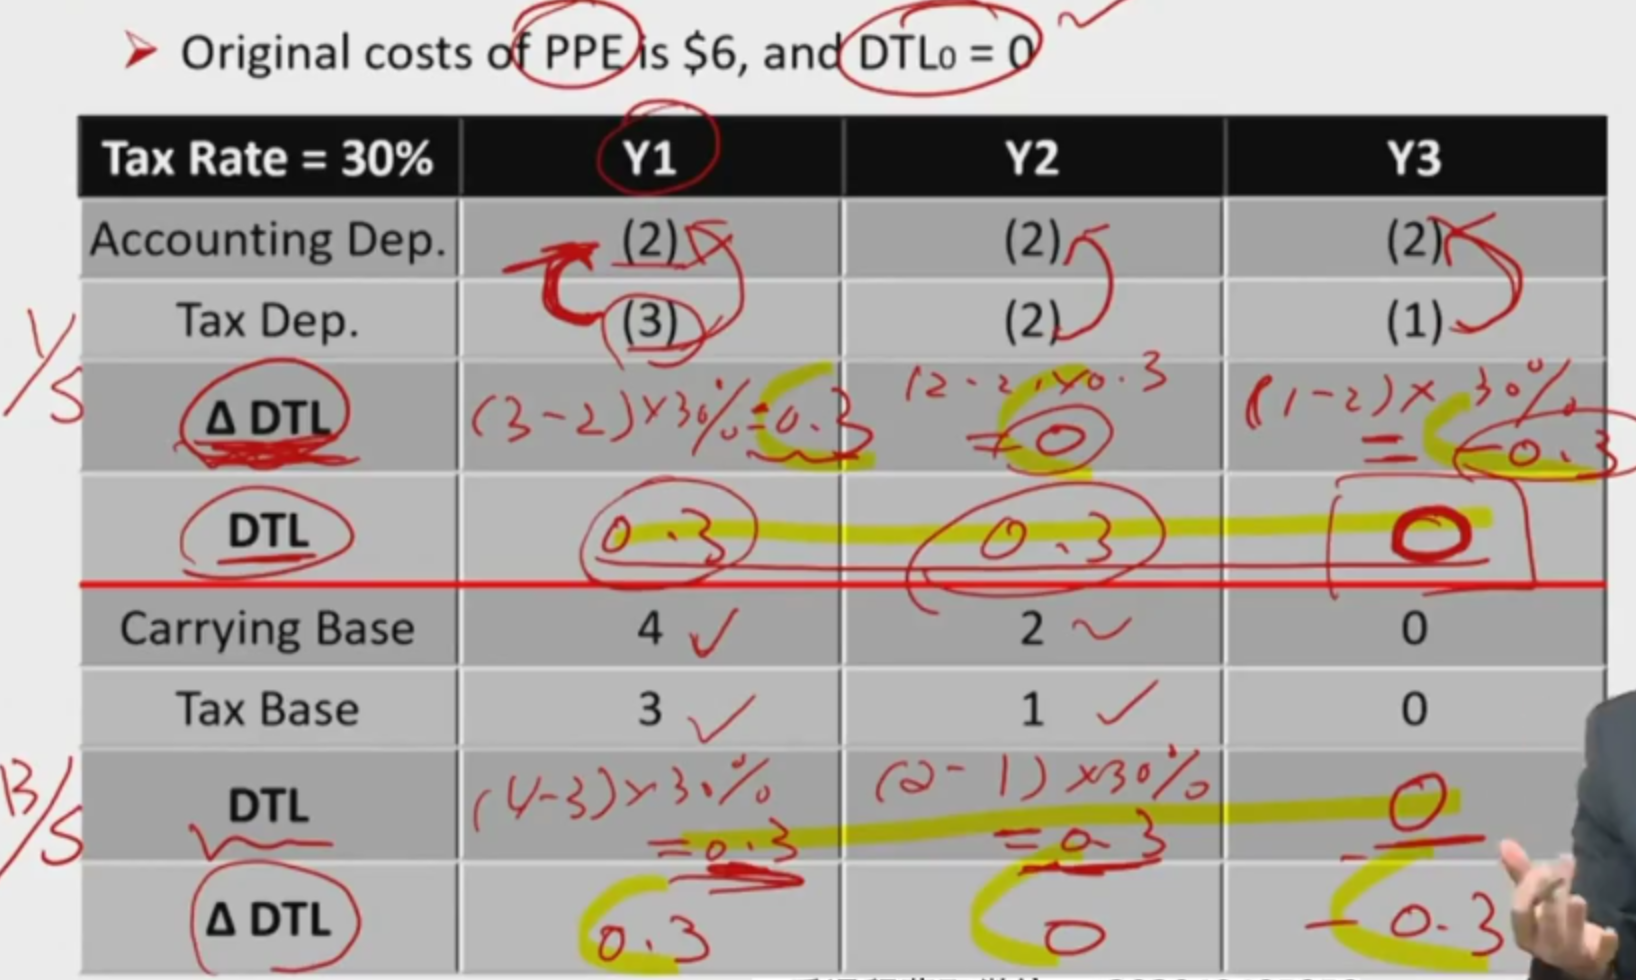 ➢ Original costs of PPE is $6, and DTL₀ = 0
Tax Rate = 30% Y1 Y2 Y3
Accounting Dep. (2) (2) (2)
Tax Dep. (3) (2) (1)
I/S
Δ DTL (3-2)×30%=0.3 (2-2)×0.3 =0 (1-2)×30% =-0.3
DTL 0.3 0.3 0
Carrying Base 4 2 0
Tax Base 3 1 0
B/S
DTL (4-3)×30% =0.3 (2-1)×30% =0.3 0
Δ DTL 0.3 0 -0.3